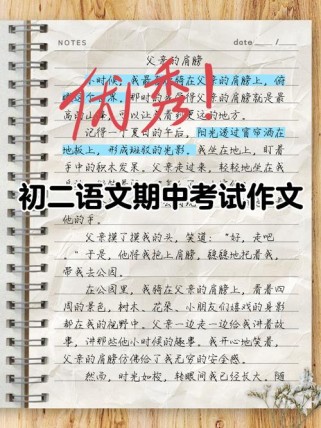 NOTES
date
父亲的肩膀
优秀!
小时候，我最
骑在父亲的肩膀上，俯
父亲的肩膀就是最
记得一个夏日的午后，阳光透过窗帘洒在
地板上，形成斑驳的光影。我坐在地上，盯着
手中的积木发呆。父亲走过来，轻轻地坐在我
初二语文期中考试作文
他的手。
父亲摸了摸我的头，笑道：“好，走吧
。”于是，他将我抱上肩膀，稳稳地托着我，
带我去公园。
在公园里，我骑在父亲的肩膀上，看着四
周的景色，树木、花朵、小朋友们嬉戏的身影
都在我的视野中。父亲一边走一边给我讲着故
事，讲那些他小时候的趣事。我开心地笑着，
父亲的肩膀仿佛给了我无穷的安全感。
然而，时光如梭，转眼间我已经长大。随